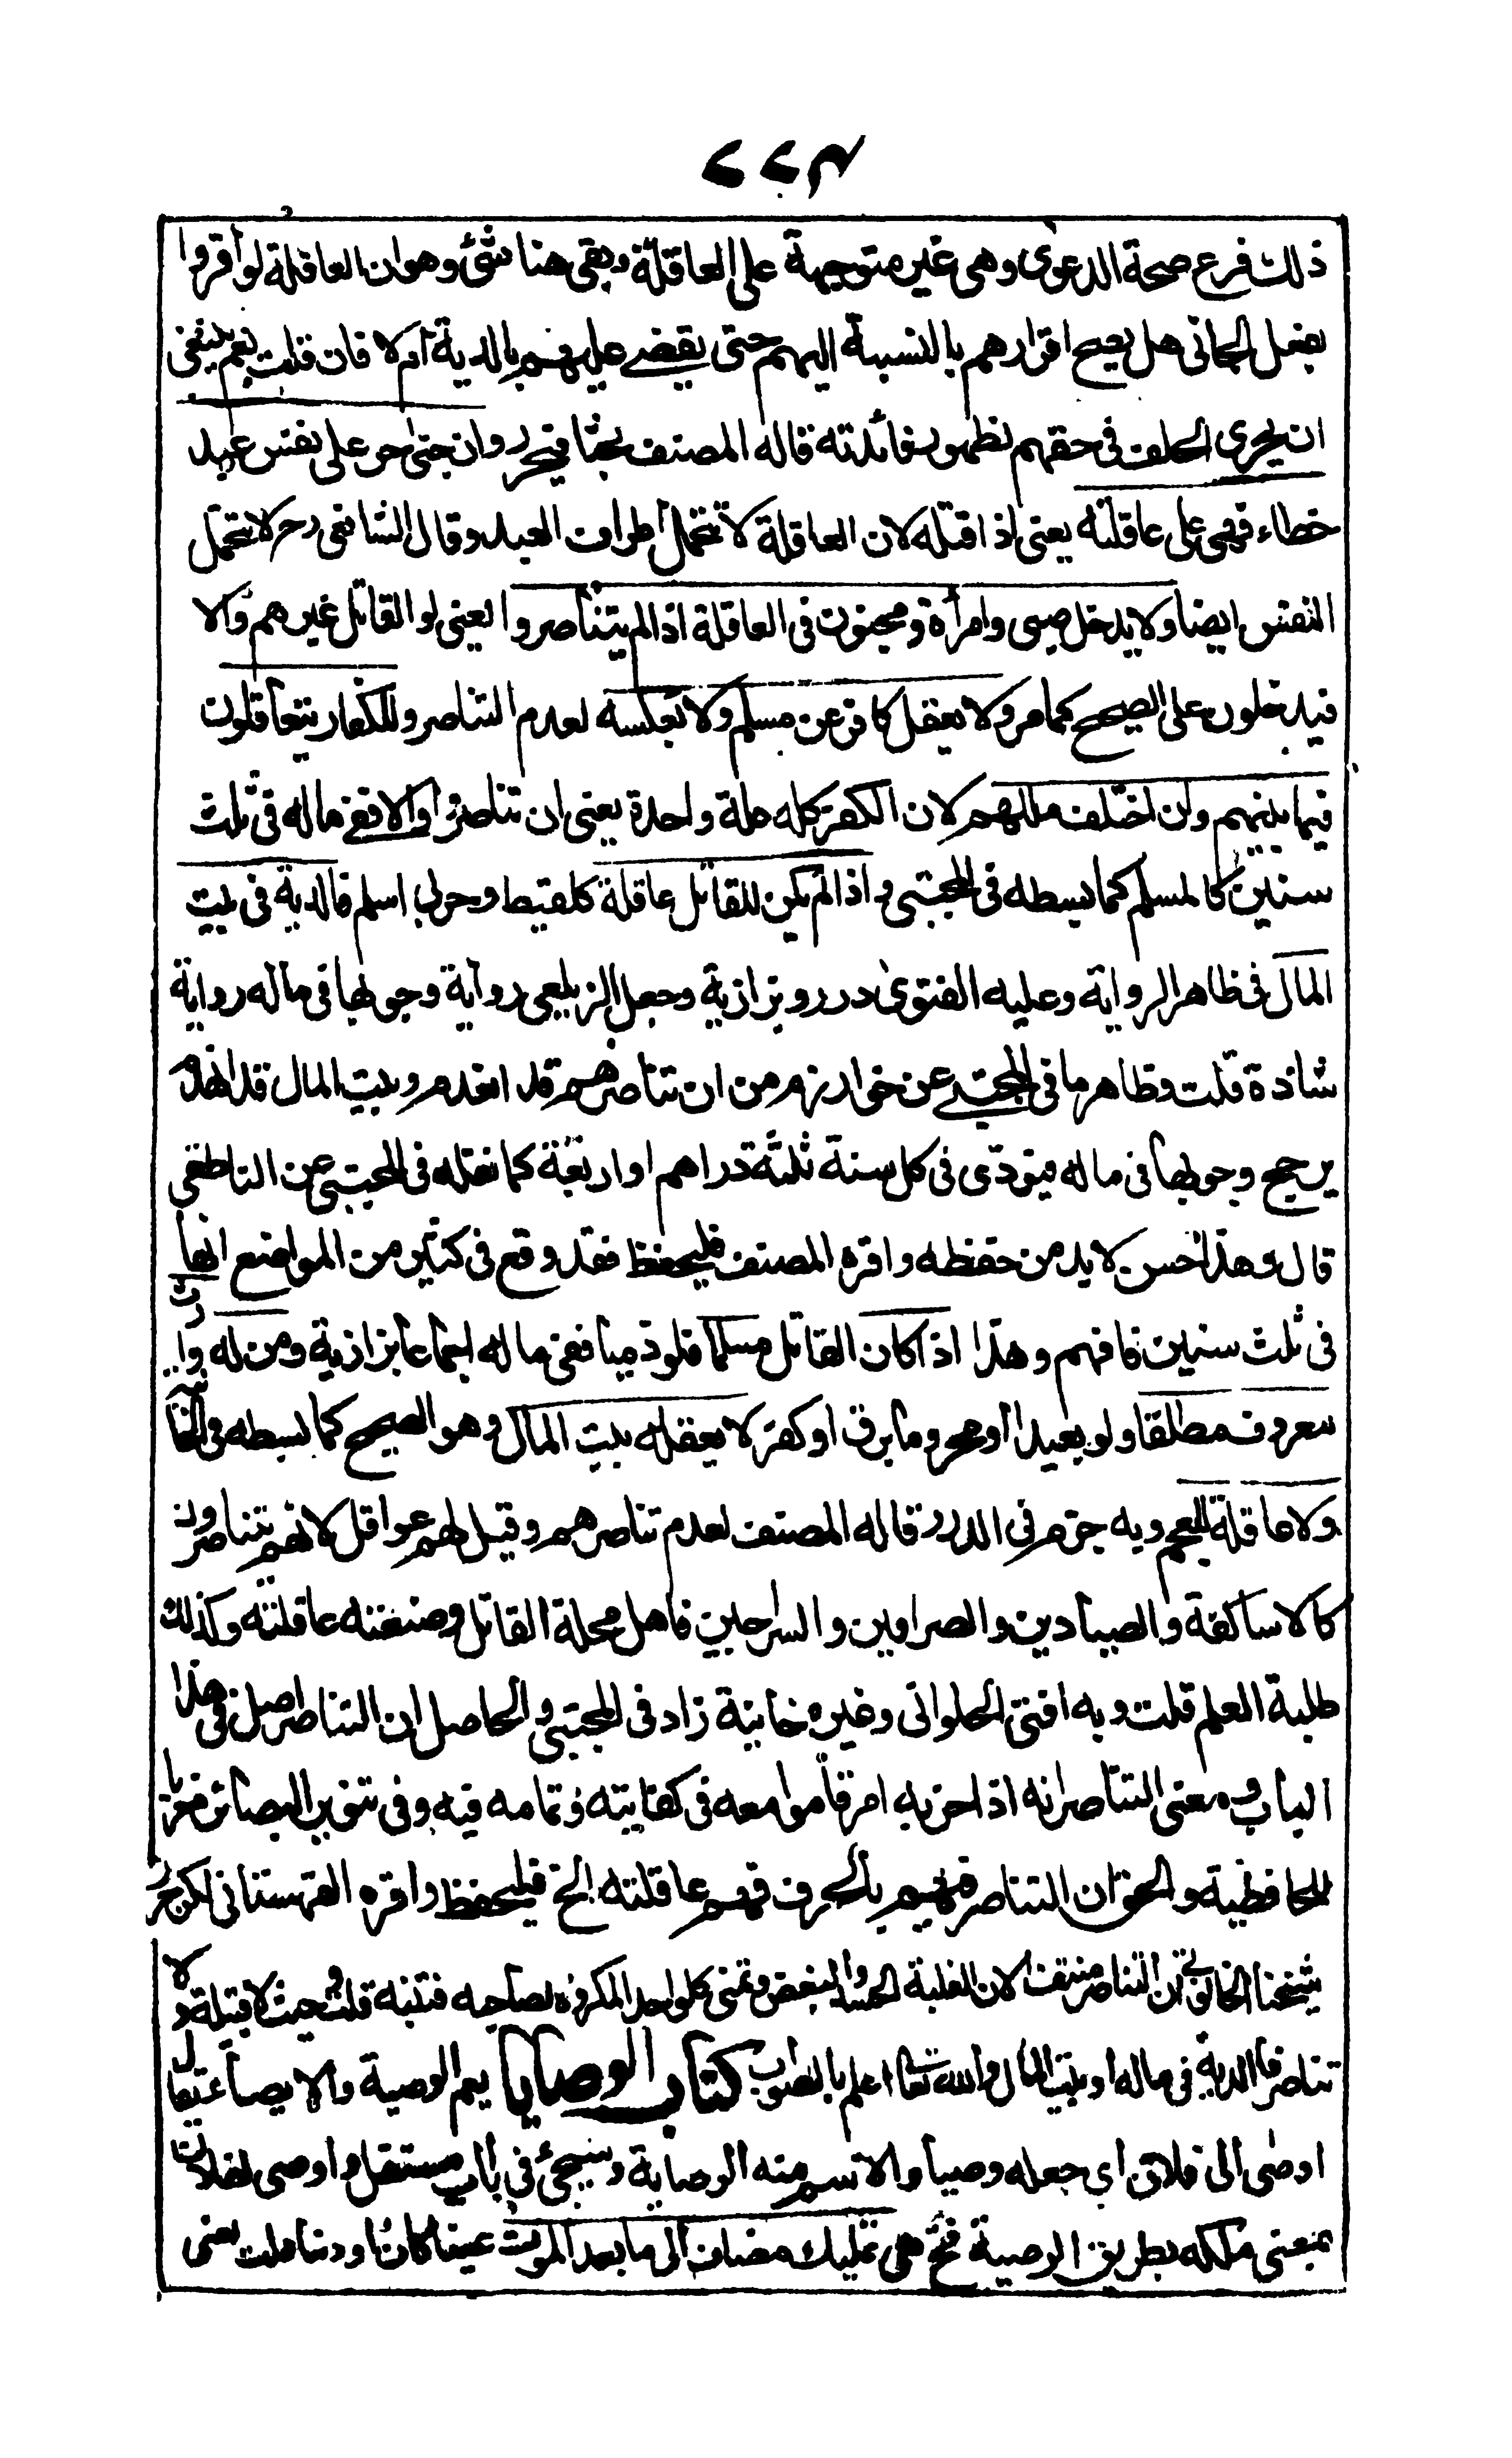 ٢٢٣
ذلك فرع صحة الدعوى وهى غير متوجهة على العاقلة وبقى هنا شئ وهو ان العاقلة لو اقروا
بفعل الجانى هل يصح اقرارهم بالنسبة اليهم حتى يقضے عليهم بالدية ام لا فان قلت نعم ينبغى
ان يجرى الحلف فى حقهم لظهور فائدته قاله المصنف بحثا فيحرر وان جنى حر على نفس عبد
خطاء فهى على عاقلته يعنى اذا قتله لان العاقلة لا تتحمل اطراف العبد وقال الشافعى رح لا تتحمل
النفس ايضا ولا يدخل صبى وامرأة ومجنون فى العاقلة اذا لم يتناصروا يعنى لو القاتل غيرهم والا
فيدخلون على الصحيح كما مر ولا يعقل كافر عن مسلم ولا بعكسه لعدم التناصر والكفار يتعاقلون
فيما بينهم وان اختلف مللهم لان الكفر كله ملة واحدة يعنى ان تناصروا والا ففے ماله فى ثلث
سنين كالمسلم كما بسطه فى المجتبى واذا لم يكن للقاتل عاقلة كلقيط وحربى اسلم فالدية فى بيت
المال فى ظاهر الرواية وعليه الفتوى درر وبزازية وجعل الزيلعى رواية وجوبها فى ماله رواية
شاذة قلت وظاهر ما فى المجتبے عن خوارزم من ان تناصرهم قد انعدم وبيت المال قد انهدم
يرجح وجوبها فى ماله فيؤدى فى كل سنة ثلثة دراهم او اربعة كما نقله فى المجتبى عن الناطفى
قال وهذا حسن لا بد من حفظه واقره المصنف فليحفظ فقد وقع فى كثير من المواضع انها
فى ثلث سنين فافهم وهذا اذا كان القاتل مسلما فلو ذميا ففى ماله اجماعا بزازية ومن له وارث
معروف مطلقا ولو بعيدا او محروما برق او كفر لا يعقله بيت المال وهو الصحيح كما بسطه فى الخانية
ولا عاقلة للعجم وبه جزم فى الدرر قاله المصنف لعدم تناصرهم وقيل لهم عواقل لانهم يتناصرون
كالاساكفة والصيادين والصرافين والسراجين فاهل محلة القاتل وصنعته عاقلته وكذلك
طلبة العلم قلت وبه افتى الحلوانى وغيره خانية زاد فى المجتبى والحاصل ان التناصر اصل فى هذا
الباب ومعنى التناصر انه اذا حزبه امر قاموا معه فى كفايته وتمامه فيه وفى تنوير البصائر معزيا
للحافظية والحق ان التناصر فيهم بالحرف فهم عاقلته الخ فليحفظ واقره القهستانى لكن حرر
شيخنا الحانوتى ان التناصر منتف الآن لغلبة الحسد والبغض وتمنى كل واحد المكروه لصاحبه فتنبه قلت وحيث لا قبيلة ولا
تناصر فالدية فى ماله او بيت المال والله تعالى اعلم بالصواب كتاب الوصايا يعم الوصية والايصاء يقال
اوصى الى فلان اي جعله وصيا والاسم منه الوصاية وسيجئ فى باب مستقل واوصى لفلان
بمعنى ملكه بطريق الوصية فح هى تمليك مضاف الى ما بعد الموت عينا كان او دينا قلت يعنى